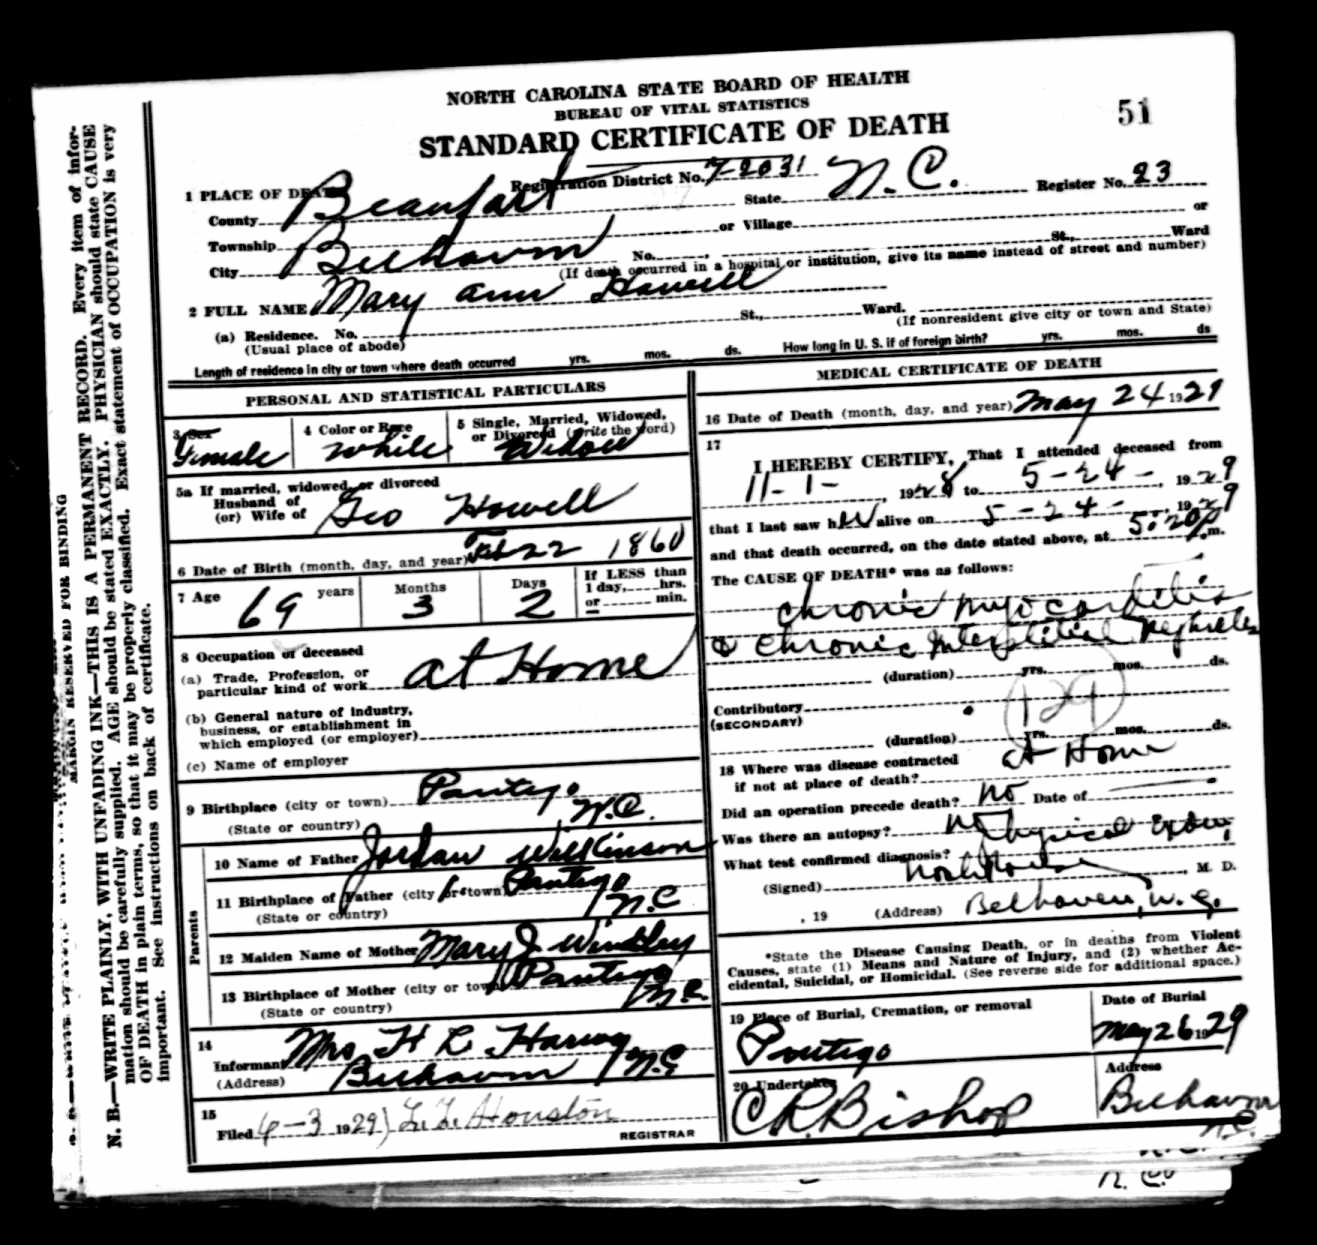 NORTH CAROLINA STATE BOARD OF HEALTH
BUREAU OF VITAL STATISTICS
STANDARD CERTIFICATE OF DEATH
51
1 PLACE OF DEATH
Registration District No. 7-2031
Register No. 23
County Beaufort State N.C.
Township or Village or
City Belhaven No. St., Ward
(If death occurred in a hospital or institution, give its name instead of street and number)
2 FULL NAME Mary Ann Howell
(a) Residence. No. St., Ward.
(Usual place of abode) (If nonresident give city or town and State)
Length of residence in city or town where death occurred yrs. mos. ds. How long in U. S. if of foreign birth? yrs. mos. ds
PERSONAL AND STATISTICAL PARTICULARS
3 Sex
Female
4 Color or Race
White
5 Single, Married, Widowed,
or Divorced (write the word)
Widow
5a If married, widowed, or divorced
Husband of
(or) Wife of Geo Howell
6 Date of Birth (month, day, and year) Feb 22 1860
7 Age 69 years
Months
3
Days
2
If LESS than
1 day, hrs.
or min.
8 Occupation of deceased
(a) Trade, Profession, or
particular kind of work at Home
(b) General nature of industry,
business, or establishment in
which employed (or employer)
(c) Name of employer
9 Birthplace (city or town) Pantego
(State or country) N.C.
Parents
10 Name of Father Jordan Wilkinson
11 Birthplace of Father (city or town) Pantego
(State or country) N.C
12 Maiden Name of Mother Mary J Windley
13 Birthplace of Mother (city or town) Pantego
(State or country) N.C.
14
Informant Mrs H L Harvey
(Address) Belhaven N.C
15
Filed 6-3 1929 L. L. Houston
REGISTRAR
MEDICAL CERTIFICATE OF DEATH
16 Date of Death (month, day, and year) May 24 1929
17
I HEREBY CERTIFY, That I attended deceased from
11-1-, 1928 to 5-24-, 1929
that I last saw her alive on 5-24-, 1929
and that death occurred, on the date stated above, at 5:20 P.m.
The CAUSE OF DEATH* was as follows:
Chronic Myocarditis
& Chronic Interstitial Nephritis
(duration) yrs. mos. ds.
Contributory
(SECONDARY)
129
(duration) yrs. mos. ds.
18 Where was disease contracted
if not at place of death? at Home
Did an operation precede death? No Date of
Was there an autopsy? No
What test confirmed diagnosis? Physical Exam,
(Signed) , M. D.
, 19 (Address) Belhaven, N.C.
*State the Disease Causing Death, or in deaths from Violent
Causes, state (1) Means and Nature of Injury, and (2) whether Ac-
cidental, Suicidal, or Homicidal. (See reverse side for additional space.)
19 Place of Burial, Cremation, or removal
Pantego
Date of Burial
May 26 1929
20 Undertaker
C R Bishop
Address
Belhaven
N.C.
N. C.
MARGIN RESERVED FOR BINDING
N. B.—WRITE PLAINLY, WITH UNFADING INK—THIS IS A PERMANENT RECORD. Every item of infor-
mation should be carefully supplied. AGE should be stated EXACTLY. PHYSICIAN should state CAUSE
OF DEATH in plain terms, so that it may be properly classified. Exact statement of OCCUPATION is very
important. See instructions on back of certificate.